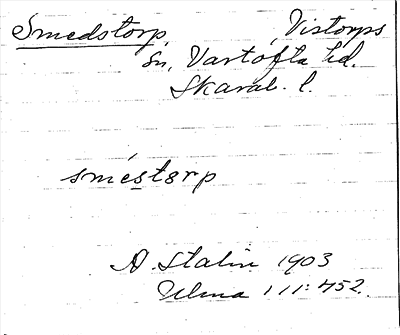 Smedstorp, Vistorps
sn, Vartofta hd.
Skarab. l.
smésto̤rp
A. Stalin 1903
Ulma 111:452.